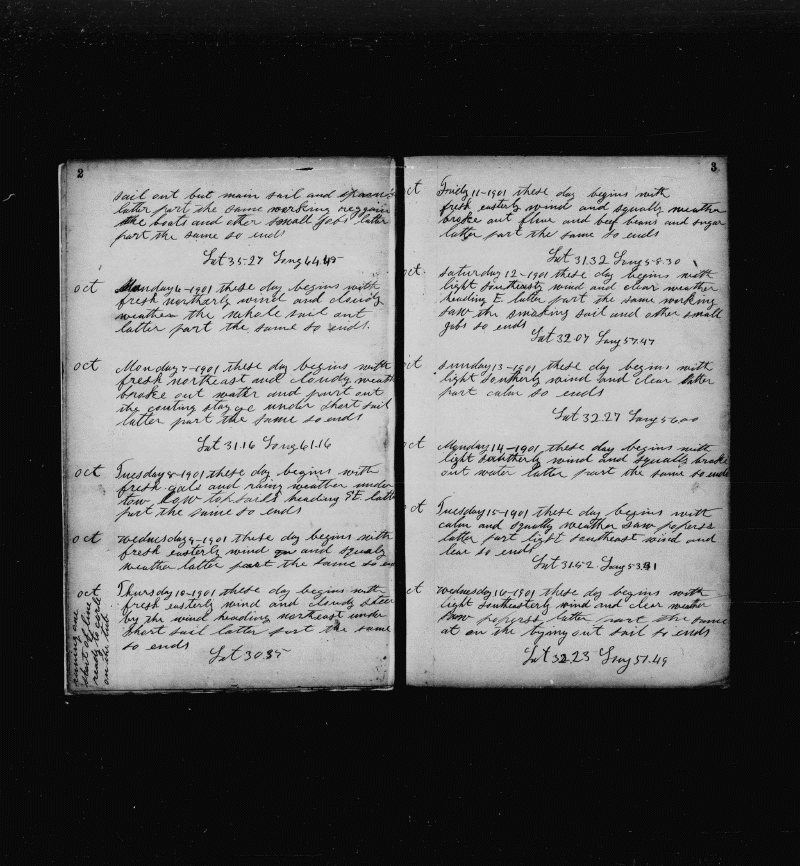 2
sail out but main sail and
latter part the same working
the boats and other small jobs latter
part the same so ends
Lat 35-27 Long 64.45
oct Monday 6-1901 these day begins with
fresh northerly wind and cloudy
weather the whole sail out
latter part the same so ends.
oct Monday 7-1901 these day begins with
fresh northeast and cloudy weath
broke out water and purt out
the couting stage under short sail
latter part the same so ends
Lat 31.16 Long 61.16
oct Tuesday 8-1901 these day begins with
fresh gale and rainy weather under
tow low topsails heading SE. latt
part the same so ends
oct wednesday 9-1901 these day begins with
fresh easterly wind and squaly
weather latter part the same so en
oct Thursday 10-1901 these day begins with
fresh easterly wind and cloudy steer
by the wind heading northeast under
short sail latter part the same
so ends
Lat 30 35
short of line
ready to
on the tub
3
oct Fridy 11-1901 these day begins with
fresh easterly wind and squally weather
broke out flour and beef beans and sugar
latter part the same so ends
Lat 31.32 Long 58.30
oct. saturday 12-1901 these day begins with
light southeasty wind and clear weather
heading E latter part the same working
saw the smoking sail and other small
gobs so ends
Lat 32.07 Long 57.47
oct sunday 13-1901 these day begins with
light Southerly wind and clear latter
part calm so ends
Lat 32.27 Long 56.00
oct Monday 14-1901 these day begins with
light southerly wind and squally broke
out water latter part the same so ends
oct Tuesday 15-1901 these day begins with
calm and squally weather saw poperss
latter part light southeast wind and
lear so ends
Lat 31.52. Long 53.91
oct wednesday 16-1901 these day begins with
light Southeasterly wind and clear weather
saw poperss latter part the same
at on the out sail so ends
Lat 32.23 Long 51.49